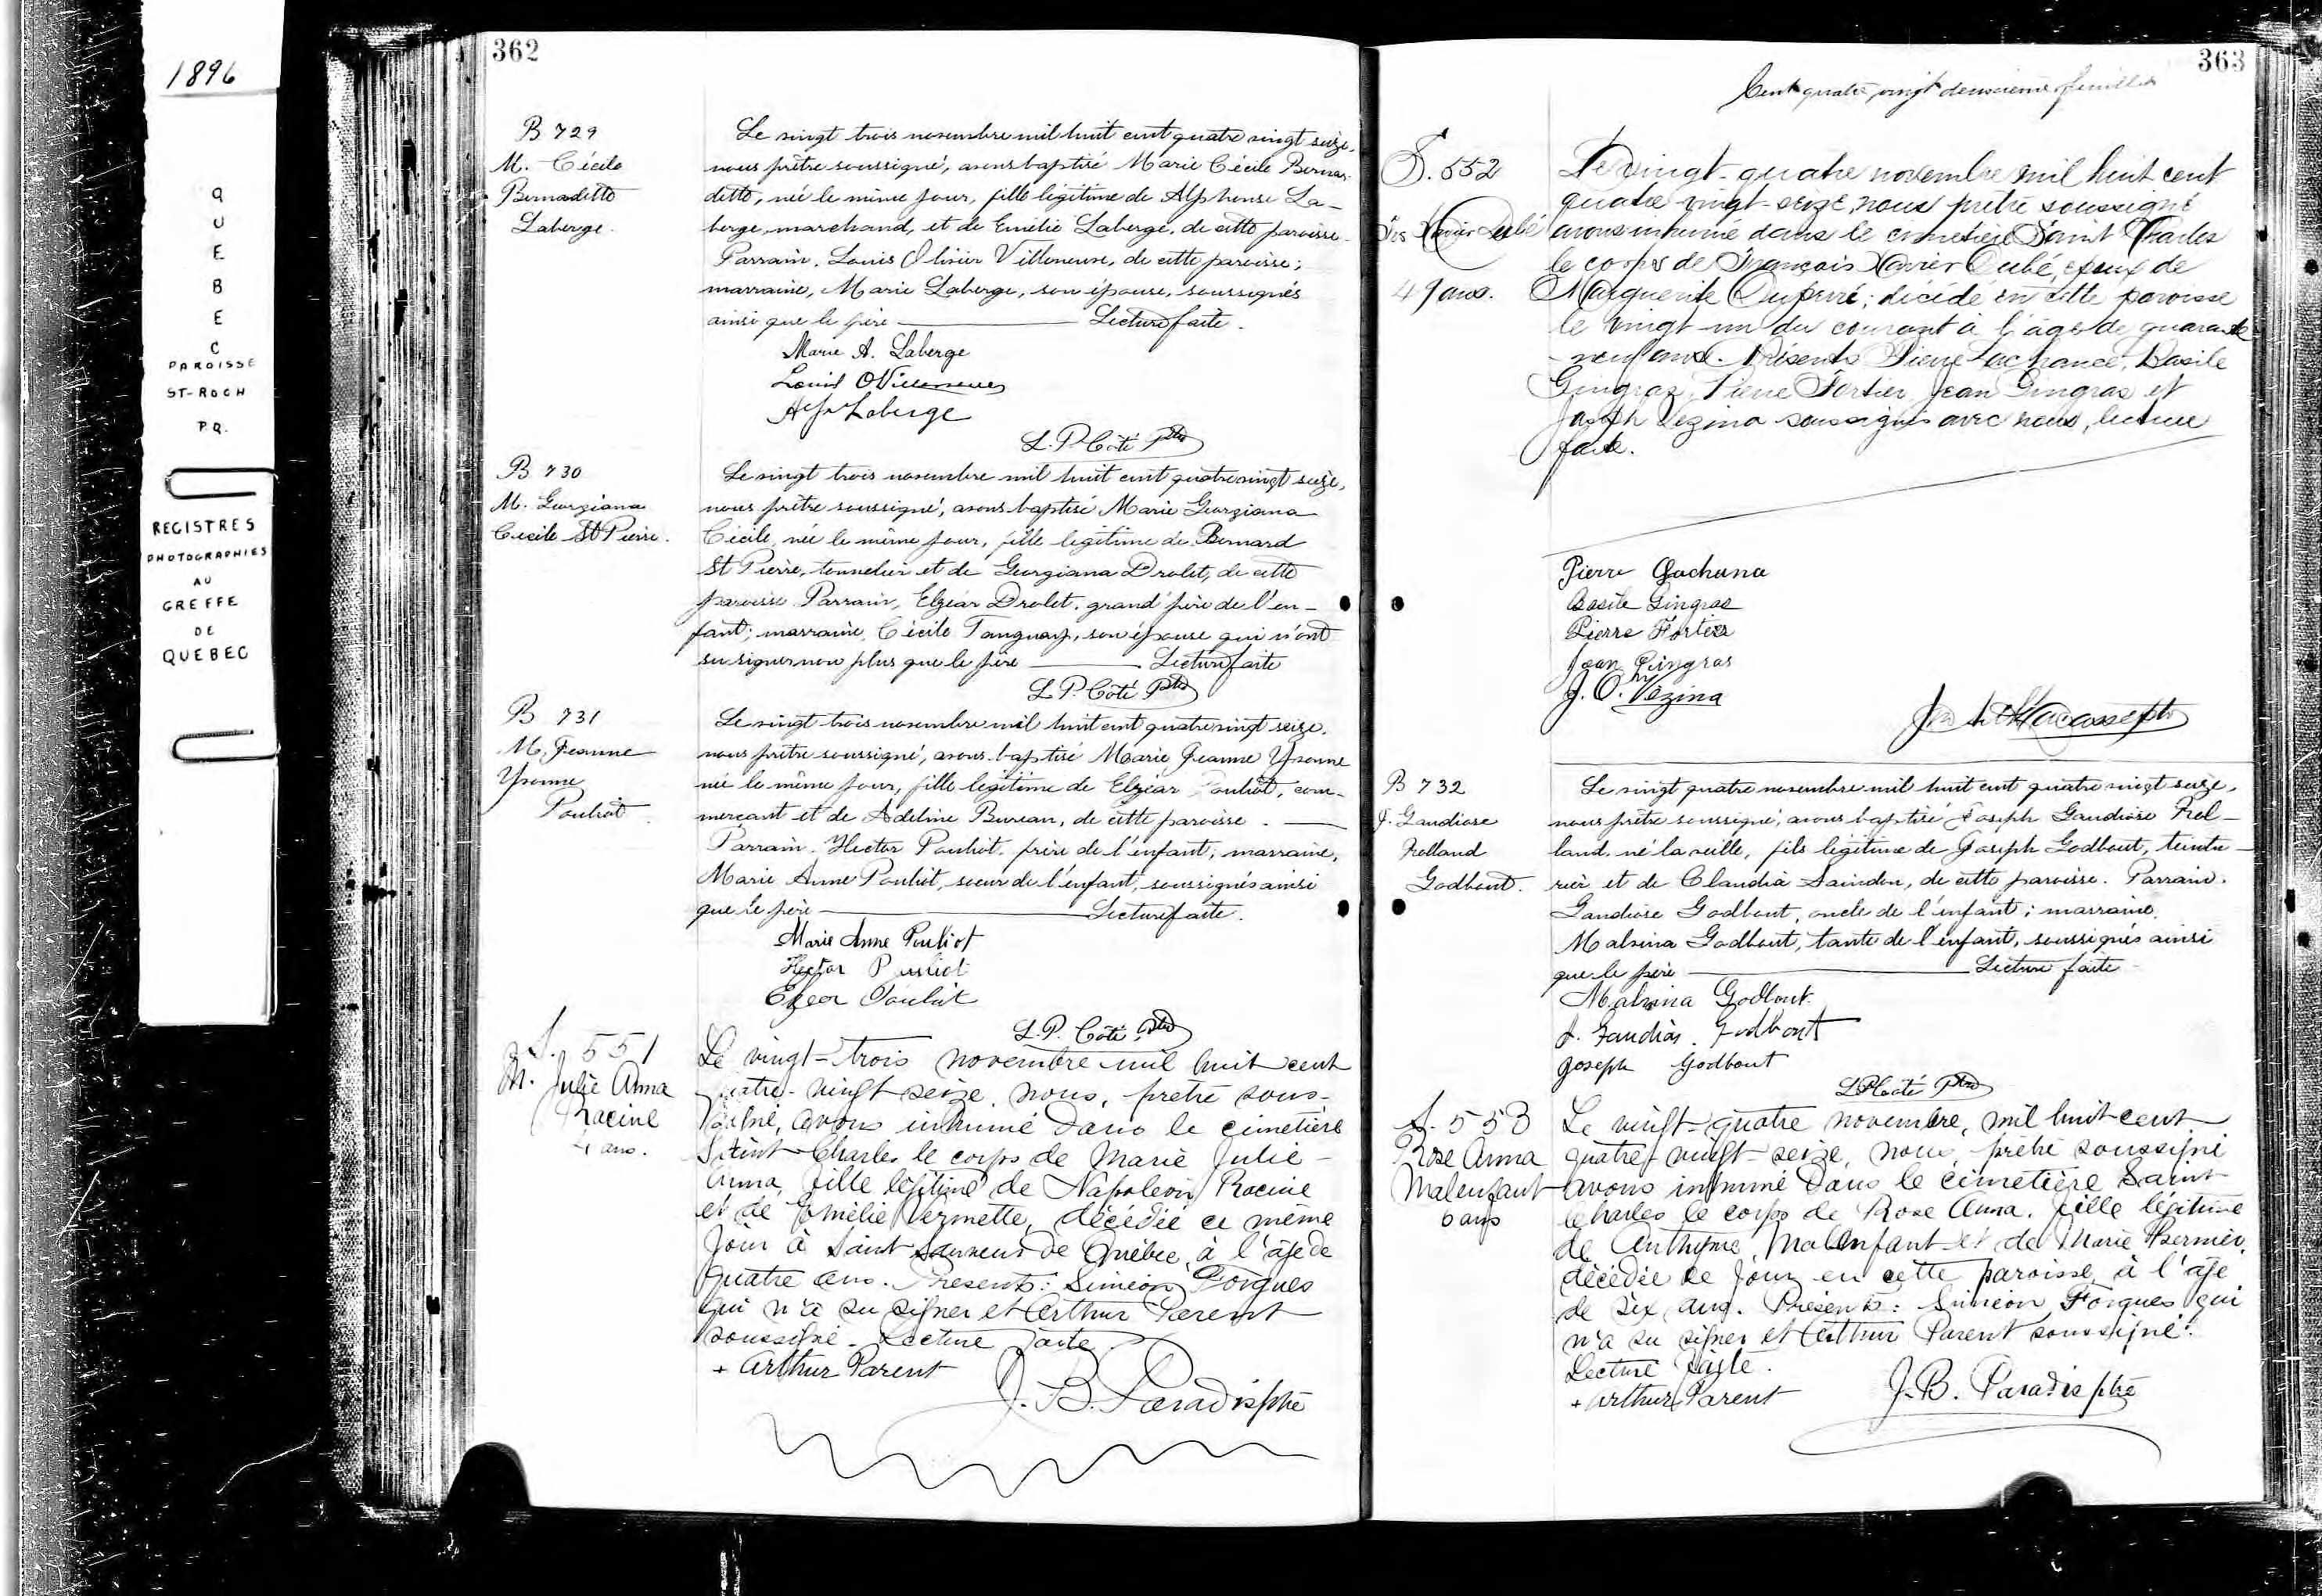 1896
QUEBEC
PAROISSE
ST-ROCH
P.Q.
REGISTRES
PHOTOGRAPHIES
AU
GREFFE
DE
QUEBEC
362
B 729
M. Cécile
Bernadette
Laberge.
Le vingt trois novembre mil huit cent quatre vingt seize,
nous prêtre soussigné, avons baptisé Marie Cécile Berna-
dette, née le même jour, fille légitime de Alphonse La-
berge, marchand, et de Emélie Laberge, de cette paroisse.
Parrain, Louis Olivier Villeneuve, de cette paroisse;
marraine, Marie Laberge, son épouse, soussignés
ainsi que le père — Lecture faite.
Marie A. Laberge
Louis O Villeneuve
Alph Laberge
L. P. Côté Ptre
B 730
M. Georgiana
Cécile St Pierre.
Le vingt trois novembre mil huit cent quatre vingt seize,
nous prêtre soussigné, avons baptisé Marie Georgiana
Cécile, née le même jour, fille légitime de Bernard
St Pierre, tonnelier et de Georgiana Drolet, de cette
paroisse. Parrain, Elzéar Drolet, grand père de l'en-
fant; marraine, Cécile Tanguay, son épouse qui n'ont
su signer non plus que le père — Lecture faite
L. P. Côté Ptre
B 731
M. Jeanne
Yvonne
Pouliot.
Le vingt trois novembre mil huit cent quatre vingt seize.
nous prêtre soussigné, avons baptisé Marie Jeanne Yvonne
née le même jour, fille légitime de Elzéar Pouliot, com-
merçant et de Adeline Bureau, de cette paroisse. —
Parrain, Hector Pouliot, frère de l'enfant; marraine,
Marie Anne Pouliot, soeur de l'enfant, soussignés ainsi
que le père — Lecture faite.
Marie Anne Pouliot
Hector Pouliot
Elzear Pouliot
L. P. Côté Ptre
S. 551
M. Julie Anna
Racine
4 ans.
Le vingt-trois novembre mil huit cent
quatre-vingt seize, nous, prêtre sous-
signé, avons inhumé dans le cimetière
Saint-Charles le corps de Marie Julie-
Anna, fille légitime de Napoléon Racine
et de Amélie Vermette, décédée ce même
jour à Saint Sauveur de Québec, à l'âge de
quatre ans. Présents: Siméon Forgues
qui n'a su signer et Arthur Parent
soussigné. Lecture faite.
+ Arthur Parent
J. B. Paradis ptre
363
Cent quatre vingt deuxième feuillet
S. 552
Frs Xavier Dubé
49 ans.
Le vingt-quatre novembre mil huit cent
quatre vingt-seize, nous prêtre soussigné
avons inhumé dans le cimetière Saint Charles
le corps de François Xavier Dubé, époux de
Marguerite Dupéré; décédé en cette paroisse
le vingt-un du courant à l'âge de quarante
-neuf ans. Présents Pierre Lachance, Basile
Gingras, Pierre Fortier, Jean Gingras et
Joseph Vezina soussignés avec nous, lecture
faite.
Pierre Lachance
Basile Gingras
Pierre Fortier
Jean Gingras
J. O. Vezina
B 732
J. Gaudiose
Rolland
Godbout.
Le vingt quatre novembre mil huit cent quatre vingt seize,
nous prêtre soussigné, avons baptisé Joseph Gaudiose Rol-
land, né la veille, fils légitime de Joseph Godbout, teintu-
rier et de Claudia Saindon, de cette paroisse. Parrain,
Gaudiose Godbout, oncle de l'enfant; marraine,
Malvina Godbout, tante de l'enfant, soussignés ainsi
que le père — Lecture faite
Malvina Godbout.
J. Gaudias. Godbout
Joseph Godbout
L P Côté Ptre
S. 553
Rose Anna
Malenfant
6 ans
Le vingt-quatre novembre, mil huit-cent
quatre-vingt-seize, nous, prêtre soussigné
avons inhumé dans le cimetière Saint
Charles le corps de Rose Anna, fille légitime
de Anthyme Malenfant et de Marie Bernier,
décédée ce jour en cette paroisse, à l'âge
de six ans. Présents: Siméon Forgues qui
n'a su signer et Arthur Parent soussigné.
Lecture faite.
+ Arthur Parent
J. B. Paradis ptre